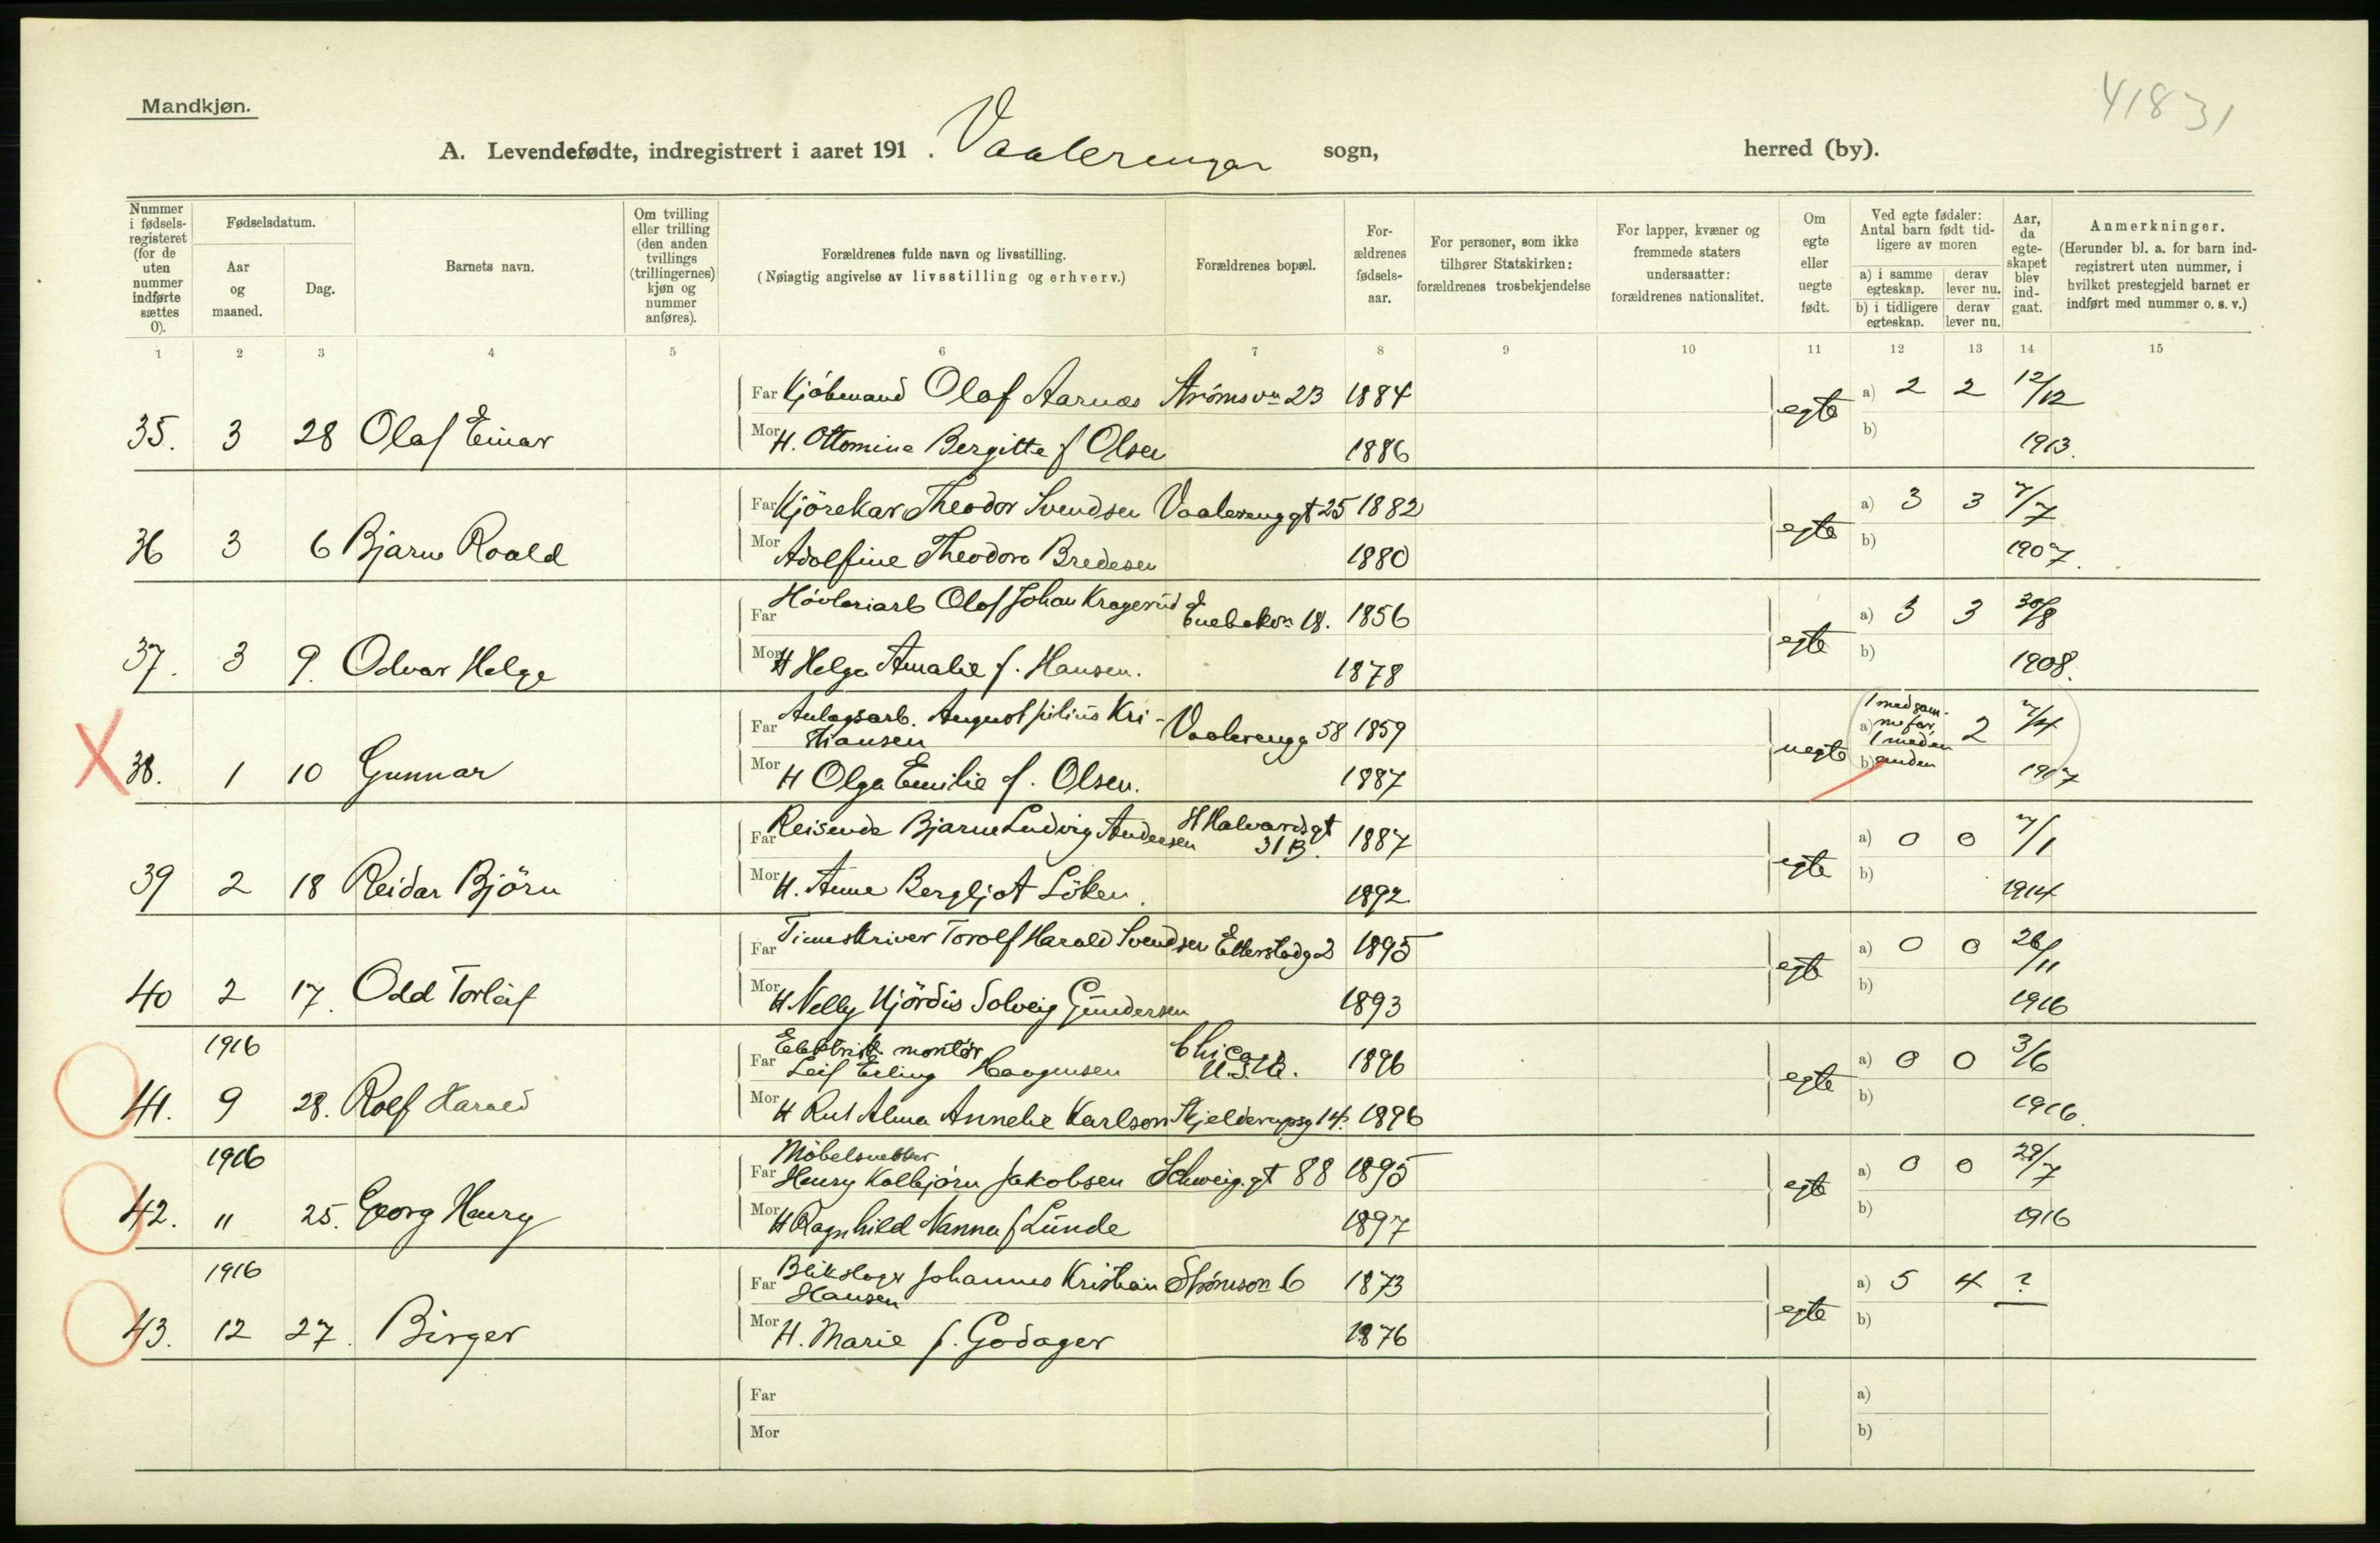 41831
Mandkjøn.
A. Levendefødte, indregistrert i aaret 191 . Vaalerengen sogn, herred (by).
Nummer i fødsels-registeret (for de uten nummer indførte sættes 0).
Fødselsdatum.
Aar og maaned.
Dag.
Barnets navn.
Om tvilling eller trilling (den anden tvillings (trillingernes) kjøn og nummer anføres).
Forældrenes fulde navn og livsstilling.
(Nøiagtig angivelse av livsstilling og erhverv.)
Forældrenes bopæl.
For-ældrenes fødsels-aar.
For personer, som ikke tilhører Statskirken: forældrenes trosbekjendelse
For lapper, kvæner og fremmede staters undersaatter: forældrenes nationalitet.
Om egte eller uegte født.
Ved egte fødsler: Antal barn født tid-ligere av moren
a) i samme egteskap.
derav lever nu.
b) i tidligere egteskap.
derav lever nu.
Aar, da egte-skapet blev ind-gaat.
Anmerkninger.
(Herunder bl. a. for barn ind-registrert uten nummer, i hvilket prestegjeld barnet er indført med nummer o. s. v.)
1 2 3 4 5 6 7 8 9 10 11 12 13 14 15
Far Kjøbmand Olaf Aarnæs Strømsvn 23 1884 egte a) 2 2 12/12
35. 3 28 Olaf Einar Mor H. Ottomine Bergitte f Olsen 1886 b) 1913.
Far Kjörekar Theodor Svendsen Vaalerenggt 25 1882 egte a) 3 3 7/7
36 3 6 Bjarne Roald Mor Adolfine Theodora Bredesen 1880 b) 1907.
Far Høvleriarb Olaf Johan Kragerud Enebakvn 18. 1856 egte a) 3 3 30/8
37. 3 9. Odvar Helge Mor H Helga Amalie f. Hansen. 1878 b) 1908.
Far Anlagsarb. August Julius Kri-
stiansen Vaalerengg 58 1859 uegte a) 1 med sam-
me far, 1 med en 2 7/4
38. 1 10 Gunnar Mor H Olga Emilie f. Olsen. 1887 b) anden 1907
Far Reisende Bjarne Ludvig Andersen St Halvardsgt 31 B. 1887 egte a) 0 0 7/1
39 2 18 Reidar Björn Mor H. Anne Bergljot Löken. 1892 b) 1914
Far Timeskriver Torolf Harald Svendsen Etterstadg 2 1895 egte a) 0 0 26/11
40 2 17. Odd Torleif Mor H Nelly Hjördis Solveig Gundersen 1893 b) 1916
1916 Far Elektrisk montør
Leif Erling Haagensen Chicago U.S.A. 1896 egte a) 0 0 3/6
41. 9 28. Rolf Harald Mor H Rut Alma Annelie Karlson Skjelderupsg 14. 1896 b) 1916.
1916 Far Møbelsnekker
Henry Kolbjørn Jakobsen Schweig. gt 88 1895 egte a) 0 0 29/7
42. " 25. Georg Henry Mor H Ragnhild Nanna f Lunde 1897 b) 1916
1916 Far Blikslager Johannes Kristian
Hansen Strømsvn 6 1873 egte a) 5 4 ?
43. 12 27. Birger Mor H. Marie f. Godager 1876 b)
Far a)
Mor b)